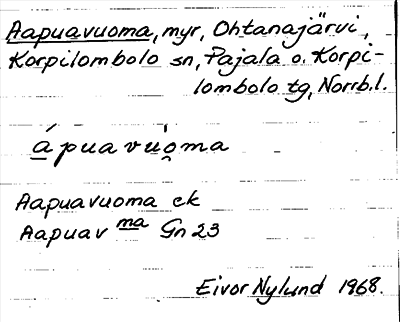 Aapuavuoma, myr, Ohtanajärvi,
Korpilombolo sn, Pajala o. Korpi-
lombolo tg, Norrb.l.
á̱puavúo̱ma
Aapuavuoma ek
Aapuav ma Gn 23
Eivor Nylund 1968.